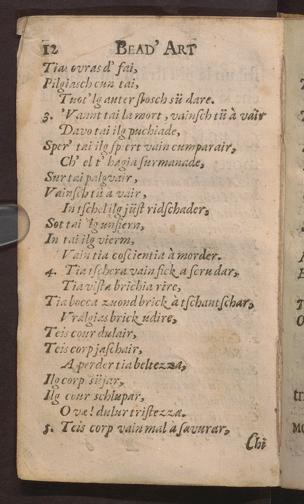 12 BEAD' ART
Tias ovras d' fai,
Pilgiasch cun tai,
Tuot' lg auter stosch sü dare.
3. 'Vannt tai la mort, vainsch tü à vair
Davo tai ilg puchiade,
Sper' tai ilg spiert vain cumparair,
Ch' el t' hagia surmanade,
Sur tai palgvair,
Vainsch tü a vair,
In tschel ilg jüst ridschader,
Sot tai 'lg unfiern,
In tai ilg vierm,
Vain tia coscientia à morder.
4. Tia tschera vain fick a scrudar,
Tia vista brichia rire,
Tia bocca zuond brick à tschantschar,
Vralgias brick udire,
Teis cour dulair,
Teis corp jaschair,
A perder tia beltezza,
Ilg corp süjar,
Ilg cour schlupar,
O væ! dulur tristezza.
5. Teis corp vain mal à savurar,
Chi